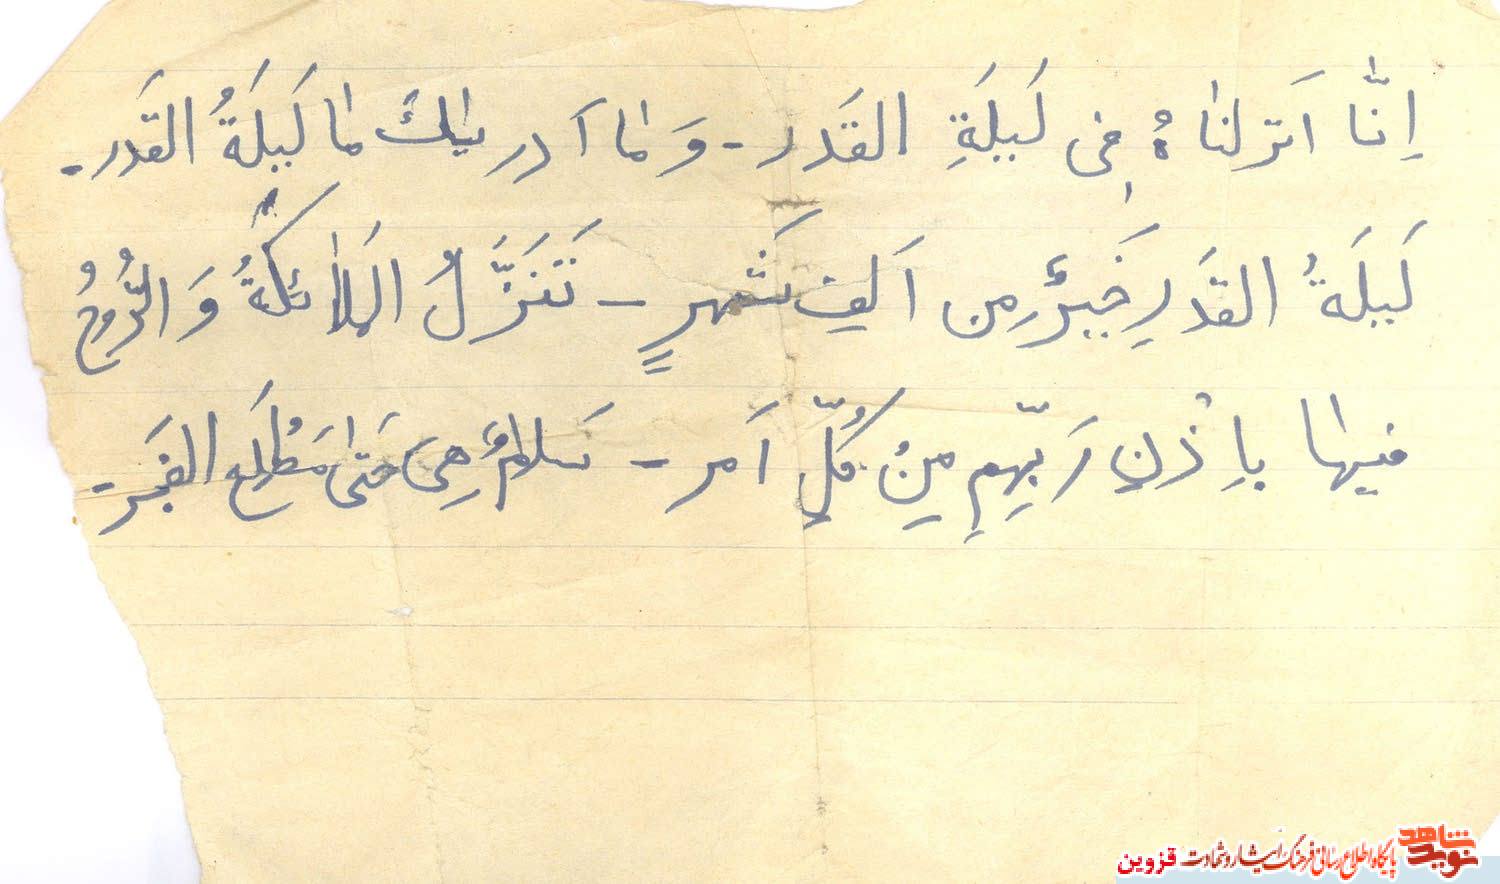 اِنّا اَنزلناهُ فی لَیلَةِ القَدر - وَ ما اَدریٰكَ ما لَیلَةُ القَدر -
لَیلَةُ القَدرِ خَیرٌ مِن اَلفِ شَهرٍ - تَنَزَّلُ المَلائکةُ وَ الرُّوحُ
فیها بِاِذنِ رَبِّهِم مِن کُلِّ اَمر - سَلامٌ هِیَ حَتیٰ مَطْلَعِ الفَجَر -
نوید شاهد
پایگاه اطلاع رسانی فرهنگ ایثار و شهادت قزوین